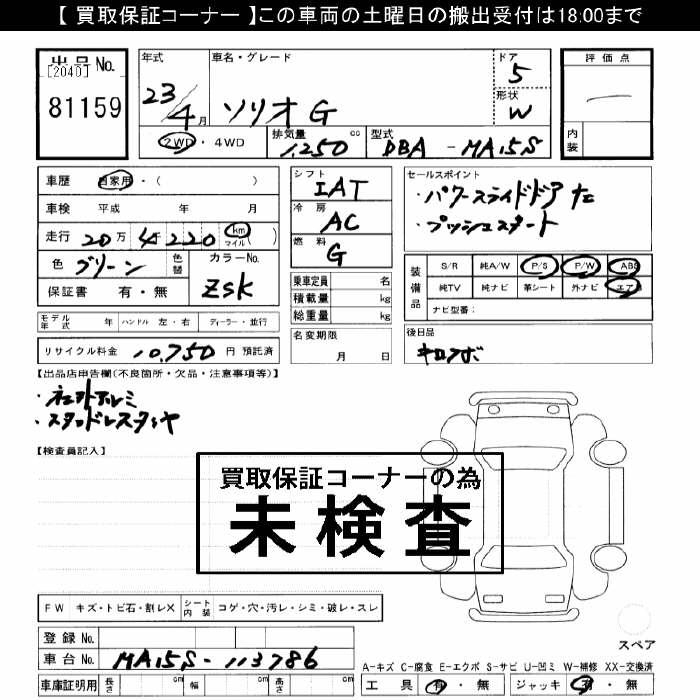 【 買取保証コーナー 】この車両の土曜日の搬出受付は18:00まで
出品 No.
[2040]
81159
年式
23/4月
車名・グレード
ソリオ G
ドア
5
形状
W
評価点
内装
2WD ・ 4WD
排気量 cc
1,250
型式
DBA - MA15S
車歴 自家用・( )
車検 平成 年 月
走行 20万 4 220 km マイル ( )
色 グリーン
色替
カラーNo.
ZSK
保証書 有・無
シフト
IAT
冷房
AC
燃料
G
乗車定員 名
積載量 kg
総重量 kg
セールスポイント
・パワースライドドア 左
・プッシュスタート
装備品
S/R 純A/W P/S P/W ABS
純TV 純ナビ 革シート 外ナビ エアB
ナビ型番:
モデル年式 年 ハンドル 左・右 ディーラー・並行
名変期限
月 日
後日品
リサイクル料金 10,750 円 預託済
【出品店申告欄(不良箇所・欠品・注意事項等)】
・スタッドレスタイヤ
【検査員記入】
買取保証コーナーの為
未検査
FW キズ・トビ石・割レX
シート内装 コゲ・穴・汚レ・シミ・破レ・スレ
登録 No.
車台 No. MA15S-113786
車庫証明用 長さ cm 幅 cm 高さ cm
スペア
A-キズ C-腐食 E-エクボ S-サビ U-凹ミ W-補修 XX-交換済
工具 有・無 ジャッキ 有・無